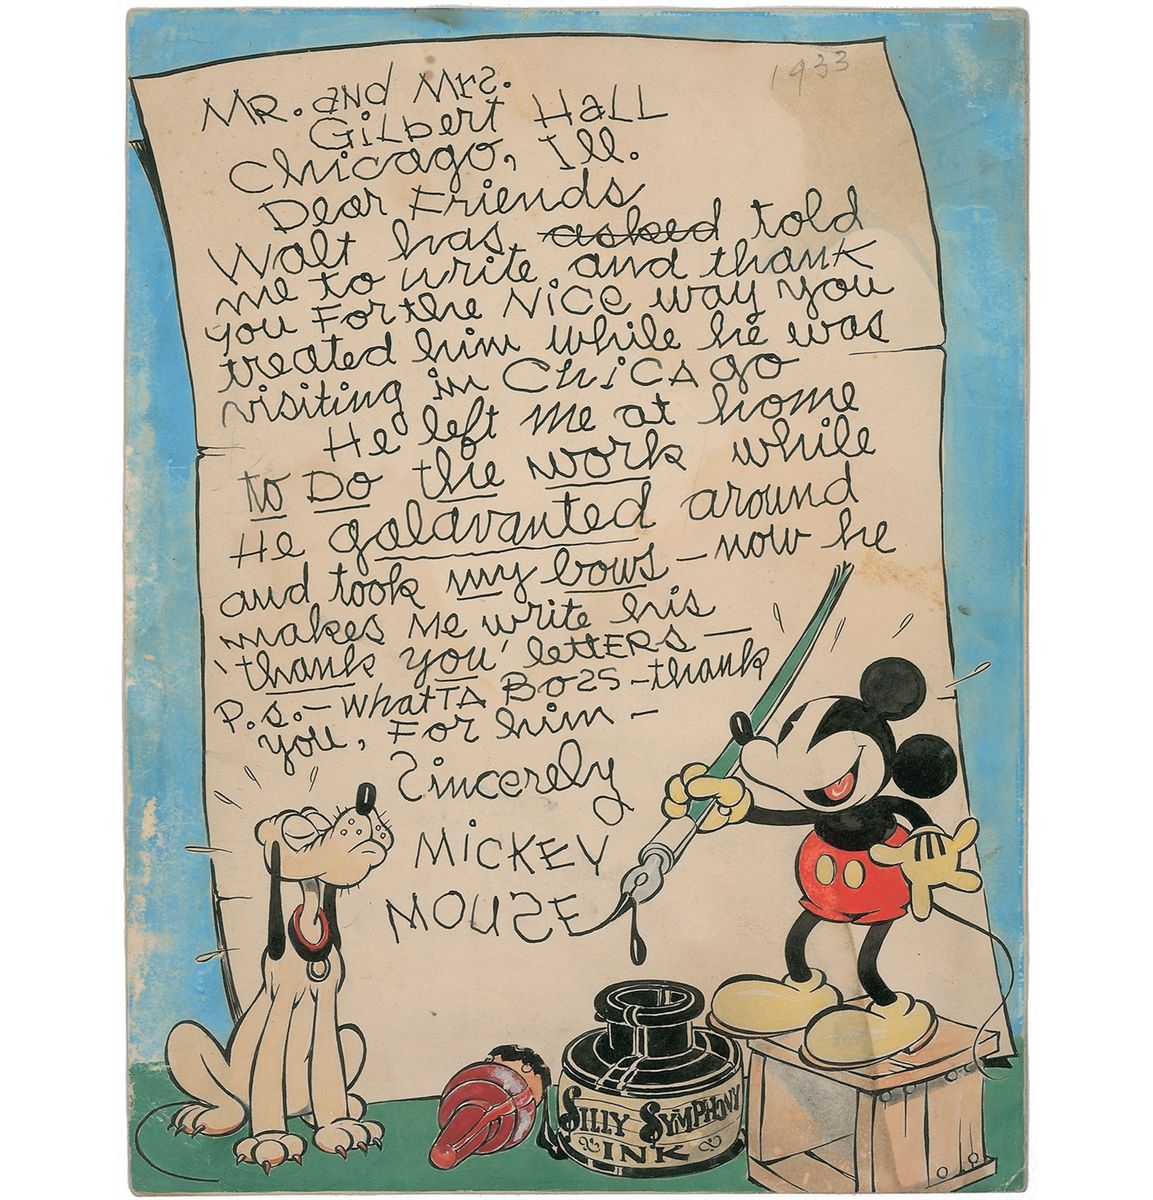 1933
MR. and Mrs.
Gilbert Hall
Chicago, Ill.
Dear Friends
Walt has asked told
me to write and thank
you For the NiCe way you
treated him while he was
visiting in CHiCAgo
He left me at home
to Do the work while
He galavanted around
and took my bows – now he
makes me write his
'thank you' lettERs –
P.s. – WhatTA BOSS – thank
you, For him –
Sincerely
MiCKEY
MOUSE
SILLY SYMPHONY
INK